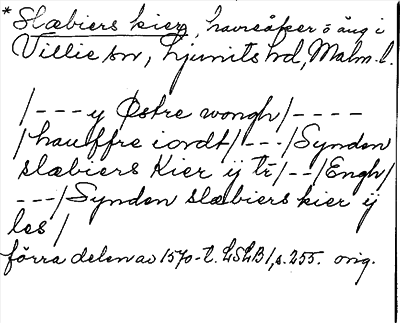 * Slæbiers kier, havreåker o äng i
Villie sn, Ljunits hd, Malm. l.
/---y Østre wongh/----
/hauffre iordt/---/Synden
slæbiers Kier ij tr/--/Engh/
---/Synden slæbiers kier ij
les/
förra delen av 1570-t. LSLB 1, s. 255. orig.